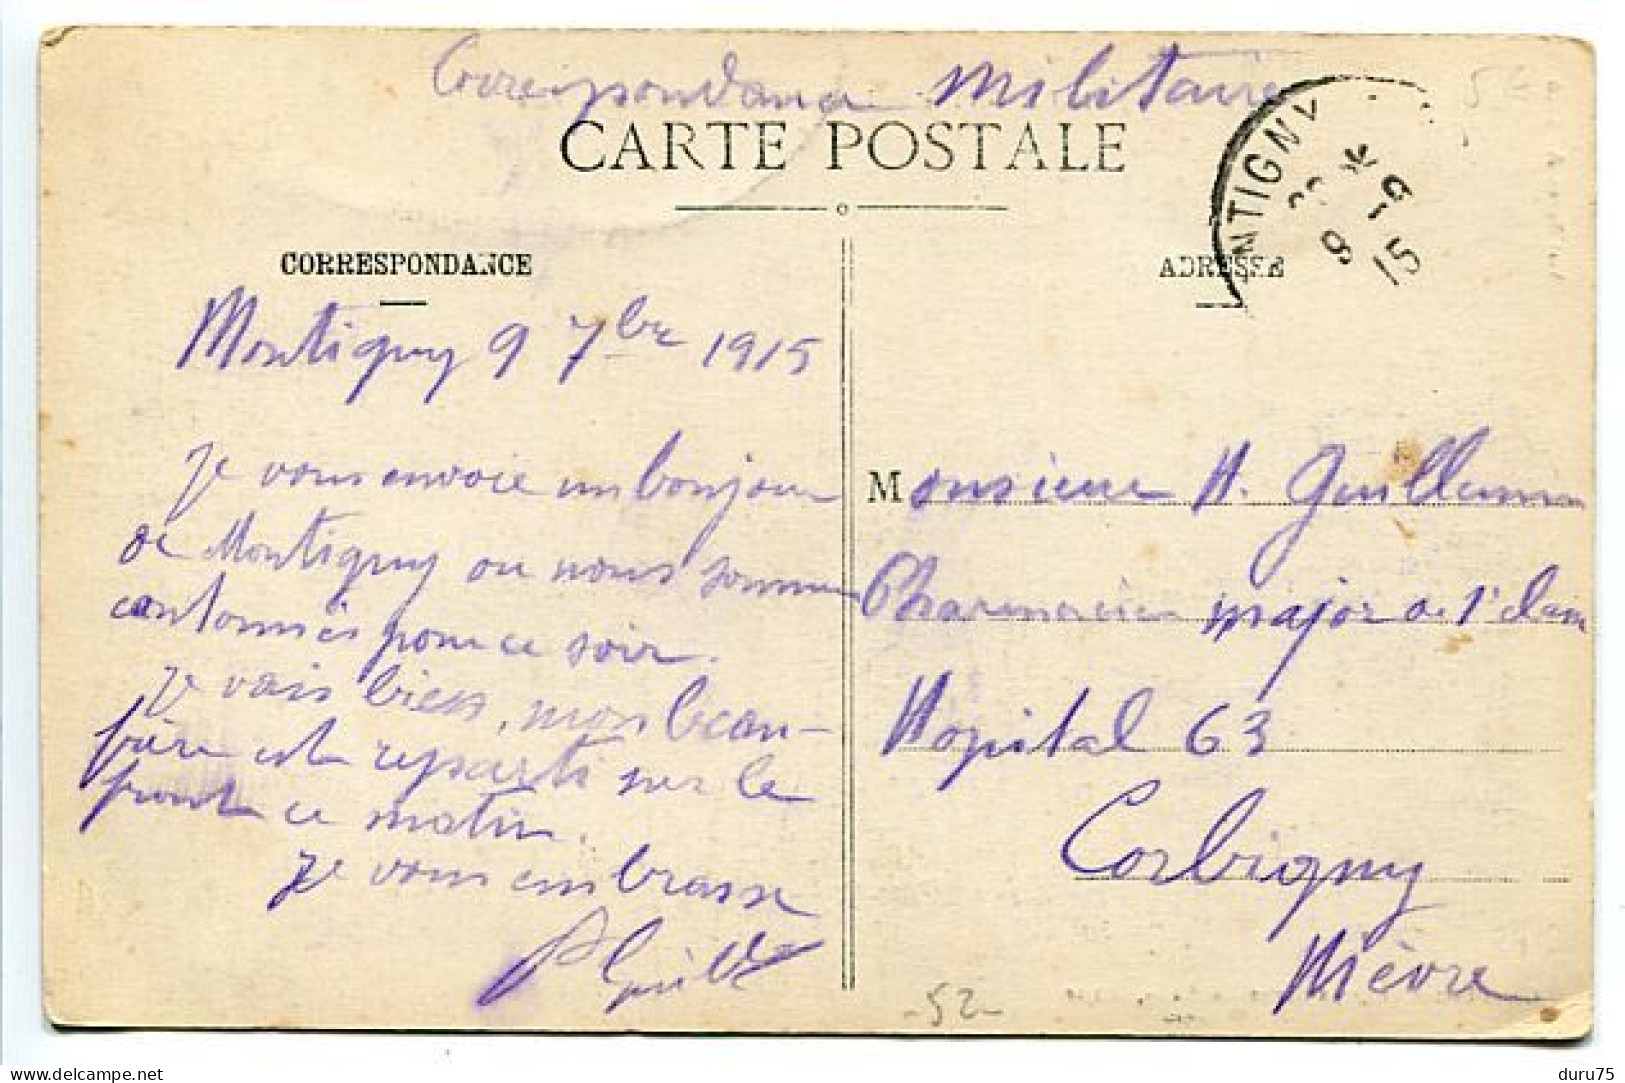 Correspondance Militaire
CARTE POSTALE
NTIGNY
9-9
15
CORRESPONDANCE
ADRESSE
Montigny 9 7bre 1915
Je vous envoie un bonjour
de Montigny ou nous sommes
cantonnés pour ce soir.
Je vais bien, mon beau-
frère est reparti sur le
front ce matin.
Je vous embrasse
Monsieur H. Guillemin
Pharmacien major de 1e classe
Hopital 63
Corbigny
Nièvre
-52-
delcampe.net
duru75